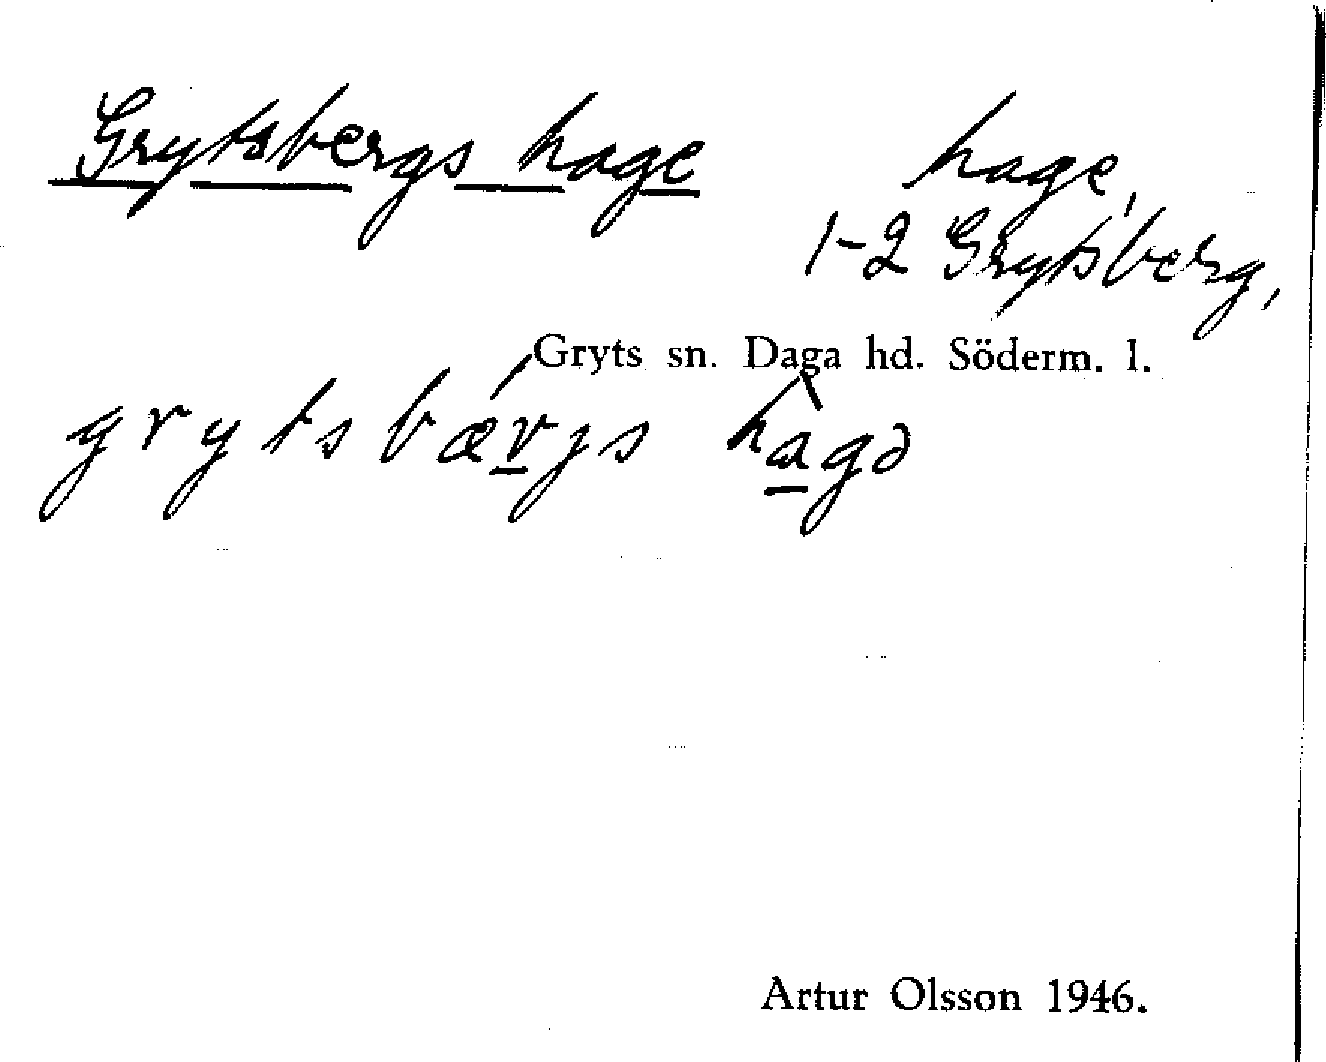 Grytsbergs hage hage,
1-2 Grytsberg,
Gryts sn. Daga hd. Söderm. l.
grytsbærjs hagə
Artur Olsson 1946.